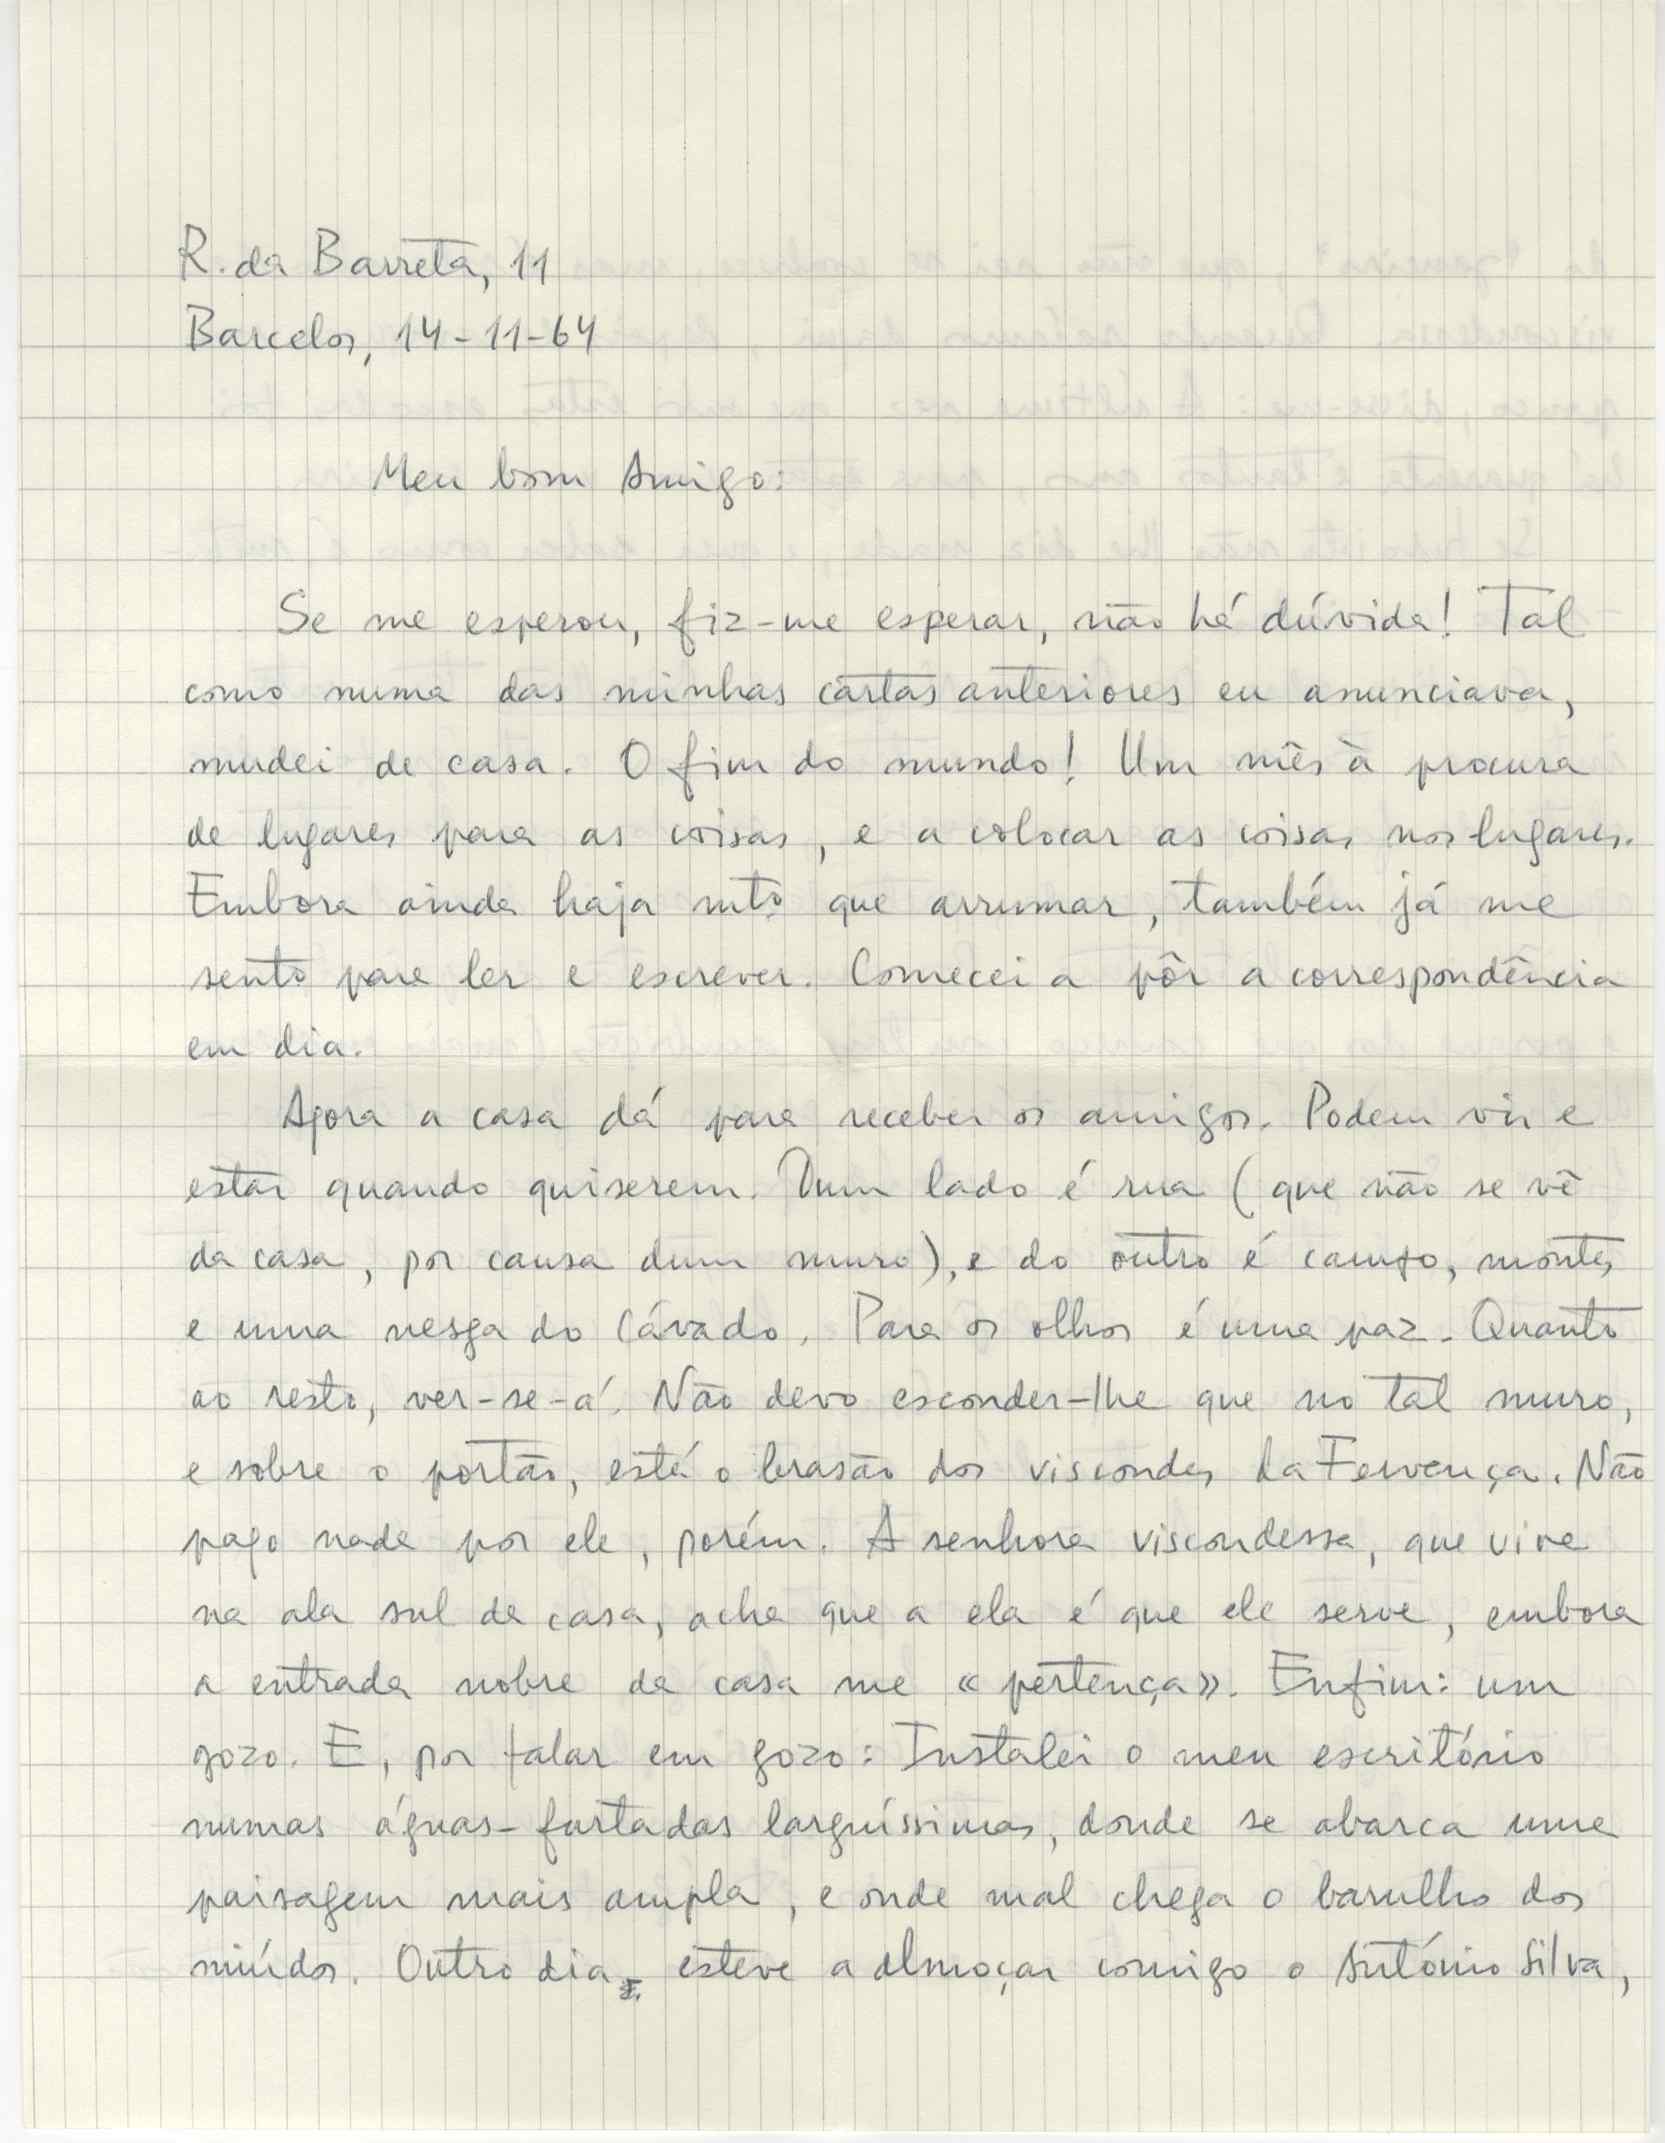 R. da Barreta, 11
Barcelos, 14-11-64
Meu bom Amigo:
Se me esperou, fiz-me esperar, não há dúvida! Tal
como numa das minhas cartas anteriores eu anunciava,
mudei de casa. O fim do mundo! Um mês à procura
de lugares para as coisas, e a colocar as coisas nos lugares.
Embora ainda haja mtº que arrumar, também já me
sento para ler e escrever. Comecei a pôr a correspondência
em dia.
Agora a casa dá para receber os amigos. Podem vir e
estar quando quiserem. Dum lado é rua (que não se vê
da casa, por causa dum muro), e do outro é campo, montes,
e uma nesga do Cávado. Para os olhos é uma paz. Quanto
ao resto, ver-se-á. Não devo esconder-lhe que no tal muro,
e sobre o portão, está o brasão dos viscondes da Fervença. Não
pago nada por ele, porém. A senhora viscondessa, que vive
na ala sul da casa, acha que a ela é que ele serve, embora
a entrada nobre da casa me «pertença». Enfim: um
gozo. E, por falar em gozo: Instalei o meu escritório
numas águas-furtadas larguíssimas, donde se abarca uma
paisagem mais ampla, e onde mal chega o barulho dos
miúdos. Outro dia, esteve a almoçar comigo o António Silva,